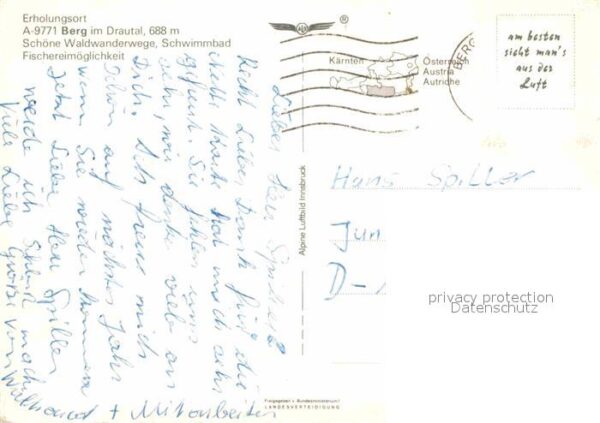 Erholungsort
A-9771 Berg im Drautal, 688 m
Schöne Waldwanderwege, Schwimmbad
Fischereimöglichkeit
®
Kärnten
Österreich
Austria
Autriche
BERG
am besten
sieht man's
aus der
Luft
Lieber Herr Spiller
Recht lieben Dank für die
liebe Karte hat mich sehr
gefreut. Sie fehlen uns
sehr, wir denken viel an
Dich. Ich freue mich
schon auf nächstes Jahr
wenn Sie wieder kommen
Jetzt Liebe Herr Spiller
werde ich Schluß machen
Viele Liebe Grüße von
+ Mitarbeiter
Alpine Luftbild Innsbruck
Hans Spiller
Jun
D-
privacy protection
Datenschutz
Freigegeben v. Bundesministerium f.
LANDESVERTEIDIGUNG